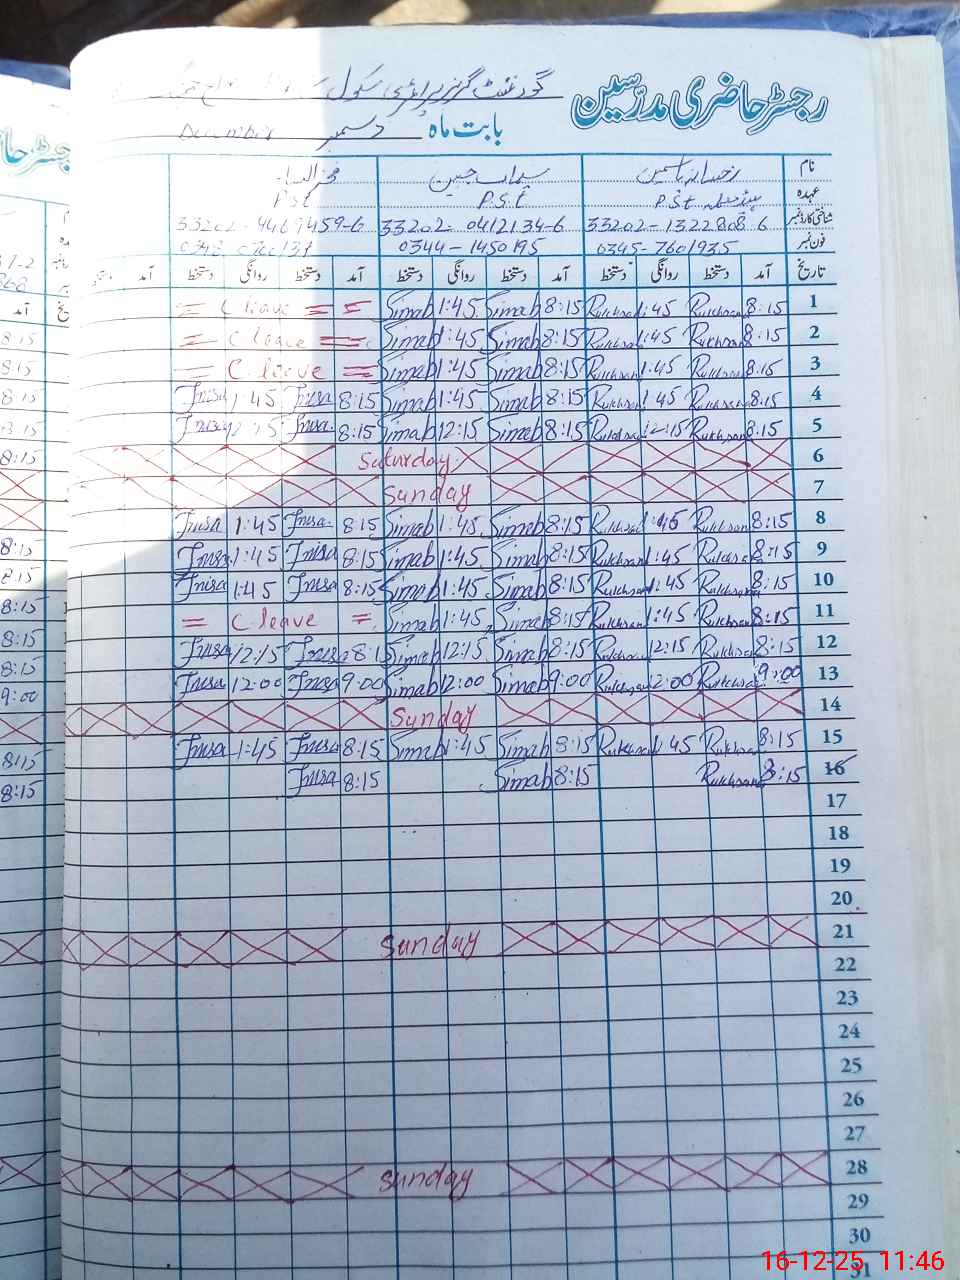 رجسٹر حاضری مدرسین
گورنمنٹ گرلز پرائمری سکول
بابت ماہ دسمبر December
نام رخسانہ یاسمین سیماب جبین فخر النساء
عہدہ P.S.t P.S.t P.S.t
شناختی کارڈ نمبر 33202-1322808-6 33202-0412134-6 33202-4469459-6
فون نمبر 0345-7601935 0344-1450195 0348
تاریخ آمد دستخط روانگی دستخط آمد دستخط روانگی دستخط آمد دستخط روانگی دستخط آمد دستخط
= C leave = = Simab 1:45 Simab 8:15 Rukhsana 1:45 Rukhsana 8:15 1
= C leave = Simab 1:45 Simab 8:15 Rukhsana 1:45 Rukhsana 8:15 2
= C leave = Simab 1:45 Simab 8:15 Rukhsana 1:45 Rukhsana 8:15 3
Inisa 1:45 Inisa 8:15 Simab 1:45 Simab 8:15 Rukhsana 1:45 Rukhsana 8:15 4
Inisa 12:15 Inisa 8:15 Simab 12:15 Simab 8:15 Rukhsana 12:15 Rukhsana 8:15 5
Saturday 6
Sunday 7
Inisa 1:45 Inisa 8:15 Simab 1:45 Simab 8:15 Rukhsana 1:45 Rukhsana 8:15 8
Inisa 1:45 Inisa 8:15 Simab 1:45 Simab 8:15 Rukhsana 1:45 Rukhsana 8:15 9
Inisa 1:45 Inisa 8:15 Simab 1:45 Simab 8:15 Rukhsana 1:45 Rukhsana 8:15 10
= C leave = Simab 1:45 Simab 8:15 Rukhsana 1:45 Rukhsana 8:15 11
Inisa 12:15 Inisa 8:15 Simab 12:15 Simab 8:15 Rukhsana 12:15 Rukhsana 8:15 12
Inisa 12:00 Inisa 9:00 Simab 12:00 Simab 9:00 Rukhsana 12:00 Rukhsana 9:00 13
Sunday 14
Inisa 1:45 Inisa 8:15 Simab 1:45 Simab 8:15 Rukhsana 1:45 Rukhsana 8:15 15
Inisa 8:15 Simab 8:15 Rukhsana 8:15 16
17
18
19
20
Sunday 21
22
23
24
25
26
27
Sunday 28
29
30
31
16-12-25 11:46